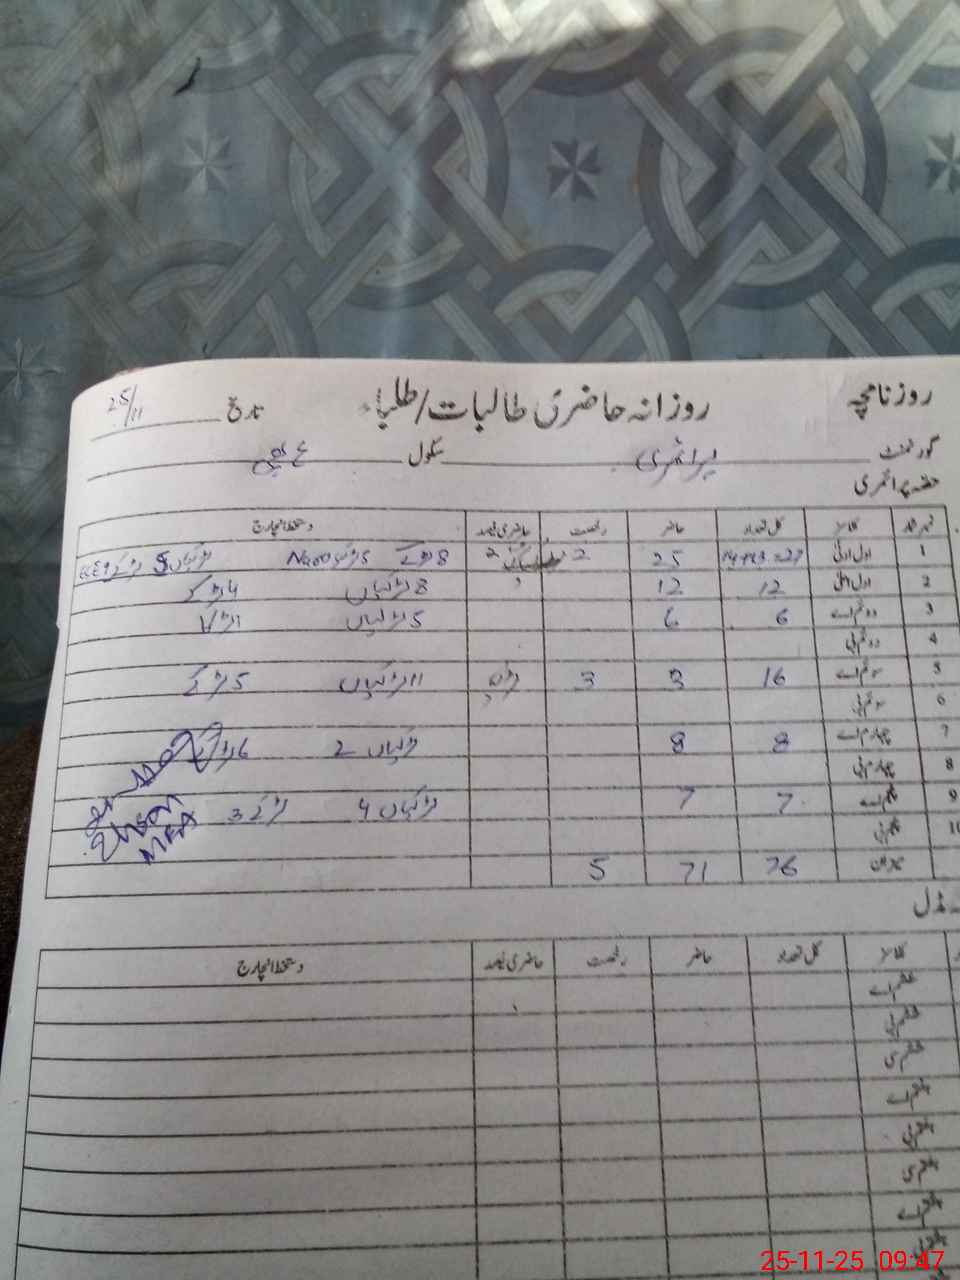 روزنامچہ روزانہ حاضری طالبات/طلباء تاریخ 25/11
گورنمنٹ پرائمری سکول
حصہ پرائمری
نمبر شمار کلاسز کل تعداد حاضر رخصت حاضری فیصد دستخط انچارج
1 اول ادنیٰ 14+13=27 25 2 8 لڑکے 5 لڑکیاں
2 اول اعلیٰ 12 12 8 لڑکیاں 4 لڑکے
3 دوئم اے 6 6 5 لڑکیاں 1 لڑکا
4 دوئم بی
5 سوئم اے 16 3 11 لڑکیاں 5 لڑکے
6 سوئم بی
7 چہارم اے 8 8 2 لڑکیاں 6 لڑکے
8 چہارم بی
9 پنجم اے 7 7 4 لڑکیاں 3 لڑکے
10 پنجم بی
میزان 76 71 5
مڈل
کلاسز کل تعداد حاضر رخصت حاضری فیصد دستخط انچارج
ششم اے
ششم بی
ششم سی
ہفتم اے
ہفتم بی
ہفتم سی
ہشتم اے
ہشتم بی
25-11-25 09:47